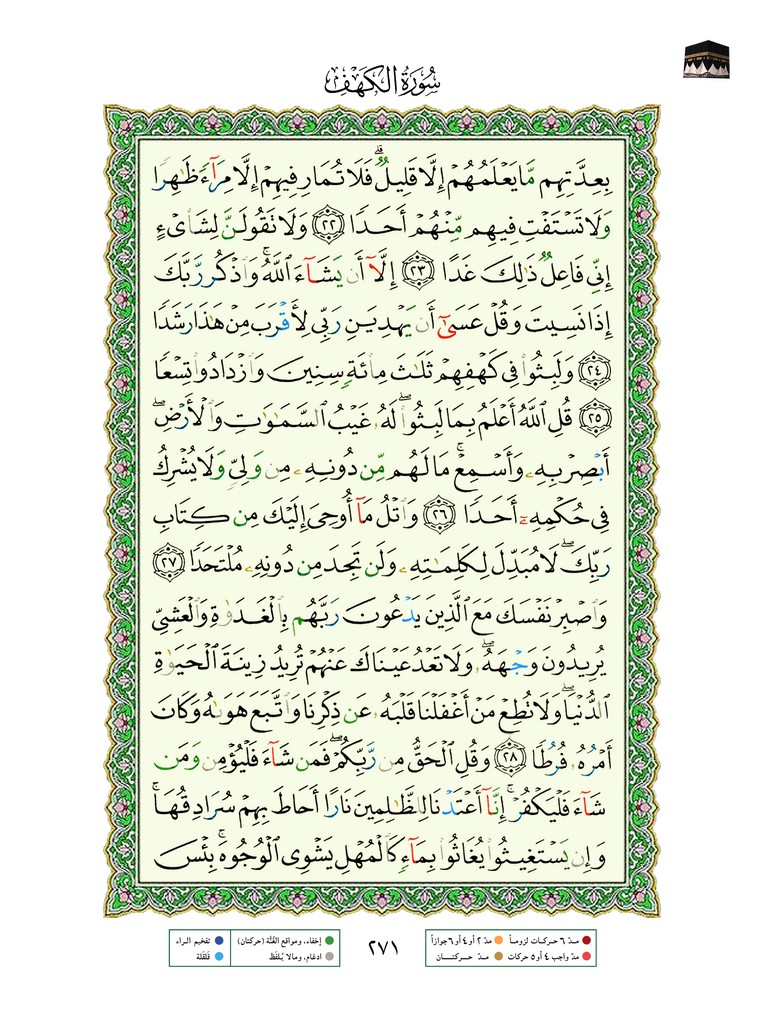 سُورَةُ الكَهْفِ
بِعِدَّتِهِم مَّا يَعْلَمُهُمْ إِلَّا قَلِيلٌ ۗ فَلَا تُمَارِ فِيهِمْ إِلَّا مِرَآءً ظَٰهِرًا
وَلَا تَسْتَفْتِ فِيهِم مِّنْهُمْ أَحَدًا ٢٢ وَلَا تَقُولَنَّ لِشَا۟ىْءٍ
إِنِّى فَاعِلٌ ذَٰلِكَ غَدًا ٢٣ إِلَّآ أَن يَشَآءَ ٱللَّهُ ۚ وَٱذْكُر رَّبَّكَ
إِذَا نَسِيتَ وَقُلْ عَسَىٰٓ أَن يَهْدِيَنِ رَبِّى لِأَقْرَبَ مِنْ هَٰذَا رَشَدًا
٢٤ وَلَبِثُوا۟ فِى كَهْفِهِمْ ثَلَٰثَ مِا۟ئَةٍ سِنِينَ وَٱزْدَادُوا۟ تِسْعًا
٢٥ قُلِ ٱللَّهُ أَعْلَمُ بِمَا لَبِثُوا۟ ۖ لَهُۥ غَيْبُ ٱلسَّمَٰوَٰتِ وَٱلْأَرْضِ ۖ
أَبْصِرْ بِهِۦ وَأَسْمِعْ ۚ مَا لَهُم مِّن دُونِهِۦ مِن وَلِىٍّ وَلَا يُشْرِكُ
فِى حُكْمِهِۦٓ أَحَدًا ٢٦ وَٱتْلُ مَآ أُوحِىَ إِلَيْكَ مِن كِتَابِ
رَبِّكَ ۖ لَا مُبَدِّلَ لِكَلِمَٰتِهِۦ وَلَن تَجِدَ مِن دُونِهِۦ مُلْتَحَدًا ٢٧
وَٱصْبِرْ نَفْسَكَ مَعَ ٱلَّذِينَ يَدْعُونَ رَبَّهُم بِٱلْغَدَوٰةِ وَٱلْعَشِىِّ
يُرِيدُونَ وَجْهَهُۥ ۖ وَلَا تَعْدُ عَيْنَاكَ عَنْهُمْ تُرِيدُ زِينَةَ ٱلْحَيَوٰةِ
ٱلدُّنْيَا ۖ وَلَا تُطِعْ مَنْ أَغْفَلْنَا قَلْبَهُۥ عَن ذِكْرِنَا وَٱتَّبَعَ هَوَىٰهُ وَكَانَ
أَمْرُهُۥ فُرُطًا ٢٨ وَقُلِ ٱلْحَقُّ مِن رَّبِّكُمْ ۖ فَمَن شَآءَ فَلْيُؤْمِن وَمَن
شَآءَ فَلْيَكْفُرْ ۚ إِنَّآ أَعْتَدْنَا لِلظَّٰلِمِينَ نَارًا أَحَاطَ بِهِمْ سُرَادِقُهَا ۚ
وَإِن يَسْتَغِيثُوا۟ يُغَاثُوا۟ بِمَآءٍ كَٱلْمُهْلِ يَشْوِى ٱلْوُجُوهَ ۚ بِئْسَ
مدّ ٦ حركات لزوماً مدّ ٢ أو ٤ أو ٦ جوازاً
مدّ واجب ٤ أو ٥ حركات مدّ حركتان
٢٧١
إخفاء، ومواقع الغُنَّة (حركتان) تفخيم الراء
ادغام، ومالا يُلفَظ قلقلة